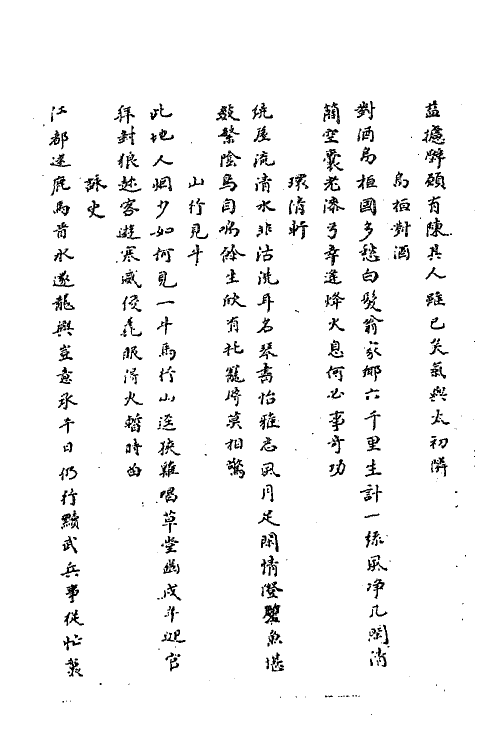 益擴解頤有陳其人雖已矣氣與太初隣
烏桓對酒
對酒烏桓國多愁白髮翁家鄉六千里生計一綈風净几閑消
簡空囊老漆弓幸逢烽火息何必事奇功
環清軒
繞屋流清水非沽洗耳名琴書怡雅志風月足閑情澄碧魚堪
數繁陰鳥自鳴餘生欣有托寵辱莫相驚
山行見斗
此地人烟少如何見一斗馬行山逕狹雞唱草堂幽戍斗迎官
拜封狼趂客遊寒威侵眊眼得火暫時留
詠史
江都逐鹿馬首水遂龍興豈意承平日仍行黷武兵事從忙裏